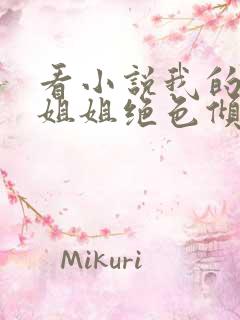 看小说我的
姐姐绝色倾
Mikuri